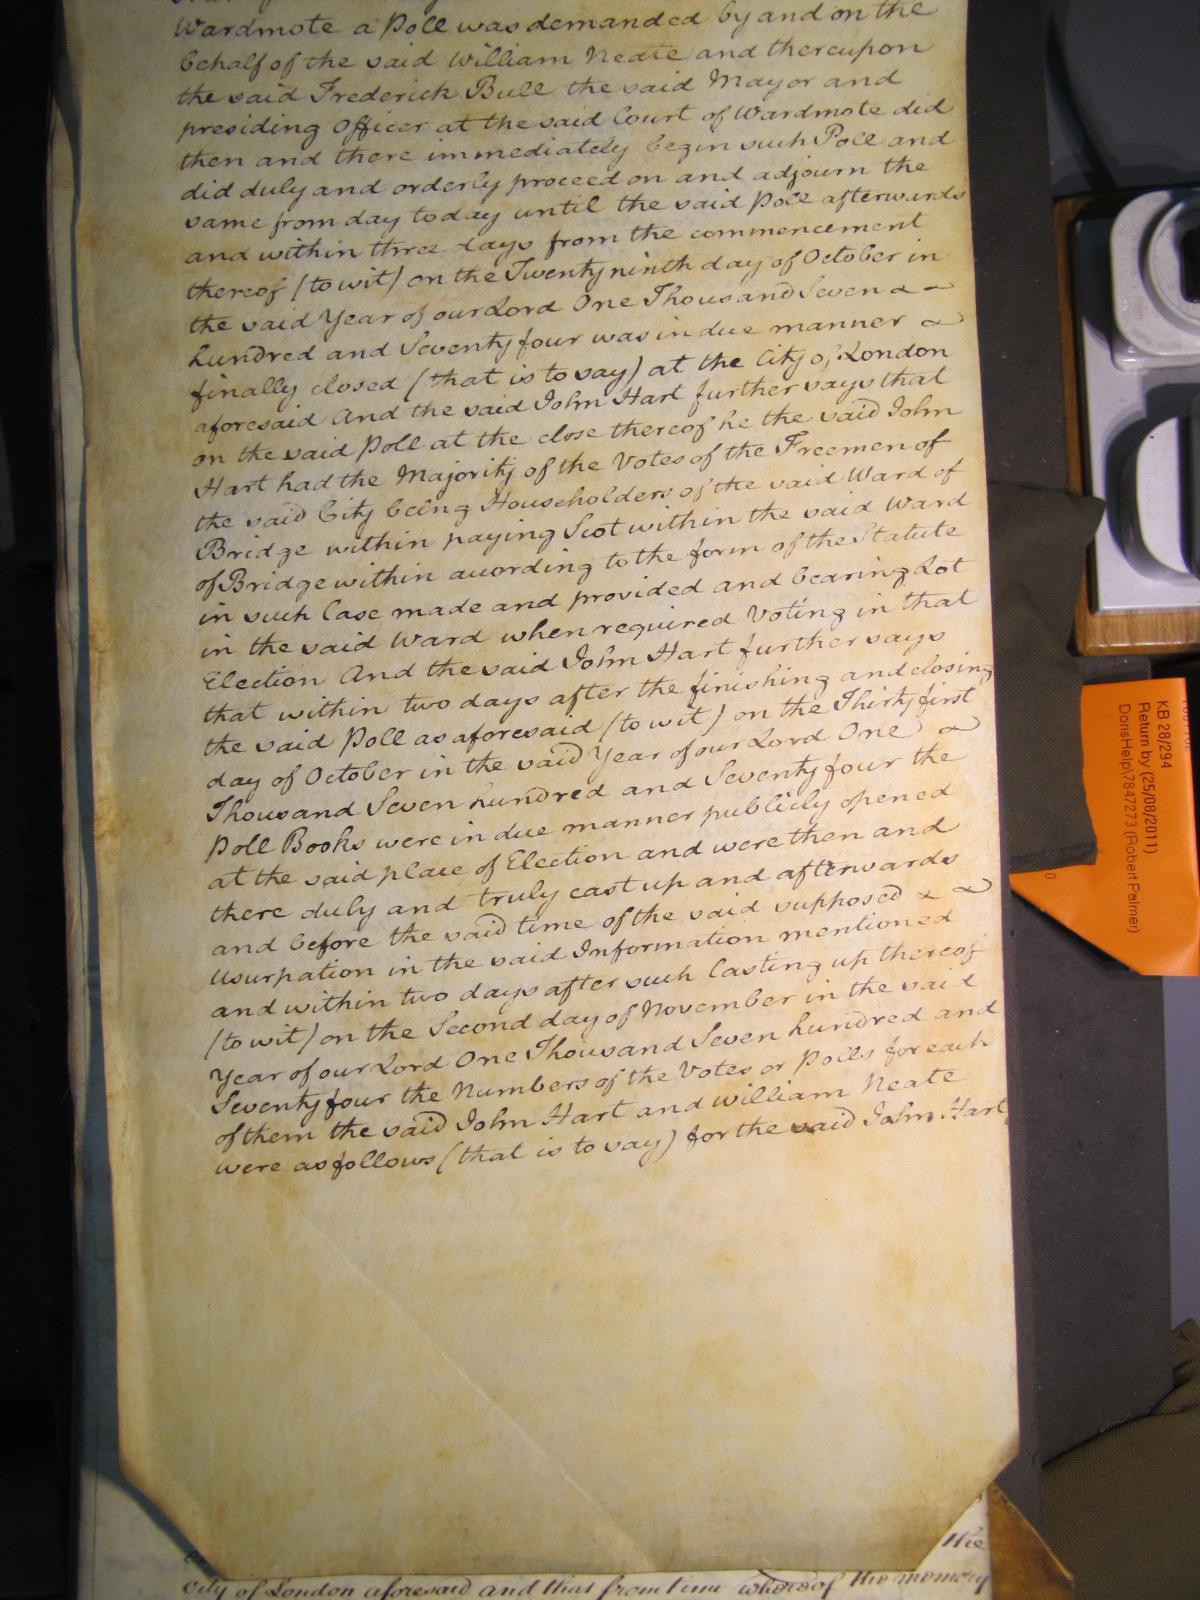 Wardmote a Poll was demanded by and on the
behalf of the said William Neate and thereupon
the said Frederick Bull the said Mayor and
presiding Officer at the said Court of Wardmote did
then and there immediately begin such Poll and
did duly and orderly proceed on and adjourn the
same from day to day until the said Poll afterwards
and within three days from the commencement
thereof (to wit) on the Twenty ninth day of October in
the said Year of our Lord One Thousand Seven
hundred and Seventy four was in due manner
finally closed (that is to say) at the City of London
aforesaid And the said John Hart further says that
on the said Poll at the close thereof he the said John
Hart had the Majority of the Votes of the Freemen of
the said City being Householders of the said Ward of
Bridge within paying Scot within the said Ward
of Bridge within according to the form of the Statute
in such Case made and provided and bearing Lot
in the said Ward when required Voting in that
Election And the said John Hart further says
that within two days after the finishing and closing
the said Poll as aforesaid (to wit) on the Thirty first
day of October in the said Year of our Lord One
Thousand Seven hundred and Seventy four the
Poll Books were in due manner publicly opened
at the said place of Election and were then and
there duly and truly cast up and afterwards
and before the said time of the said supposed
Usurpation in the said Information mentioned
and within two days after such Casting up thereof
(to wit) on the Second day of November in the said
Year of our Lord One Thousand Seven hundred and
Seventy four the Numbers of the Votes or Polls for each
of them the said John Hart and William Neate
were as follows (that is to say) for the said John Hart
the
city of London aforesaid and that from time whereof the memory
KB 28/294
Return by (25/08/2011)
DorisHelp\7847273 (Robert Palmer)